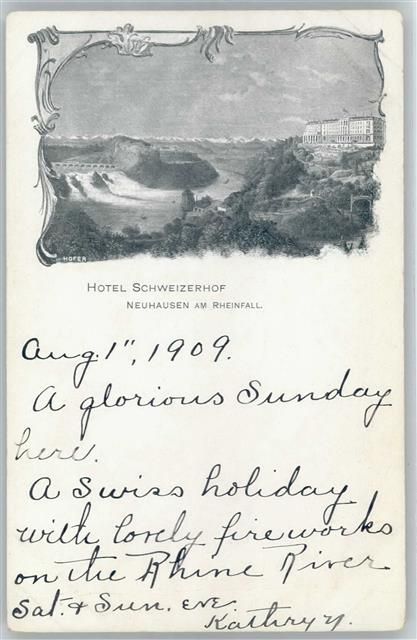 HOFER
HOTEL SCHWEIZERHOF
NEUHAUSEN AM RHEINFALL.
Aug. 1", 1909.
A glorious Sunday
here.
A Swiss holiday
with lovely fireworks
on the Rhine River
Sat. & Sun. eve.
Kathryn.